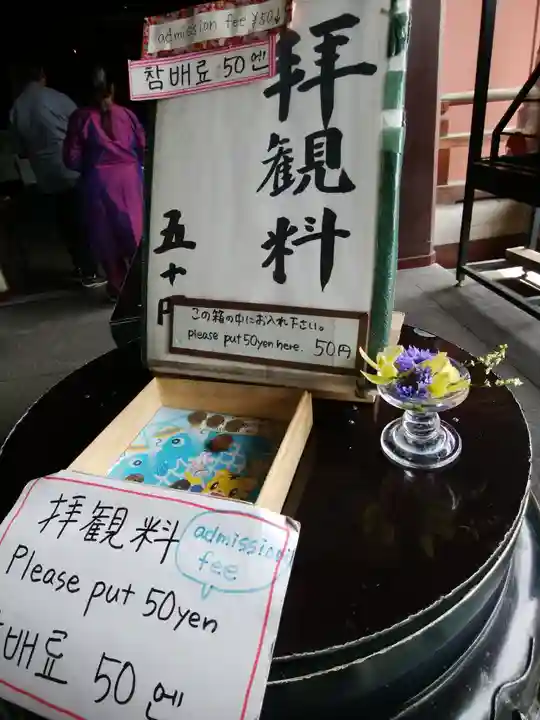 admission fee ¥50↓
참배료 50엔
拝観料
五十円
この箱の中にお入れ下さい。
please put 50yen here. 50円
拝観料
admission fee
Please put 50yen
참배료 50엔